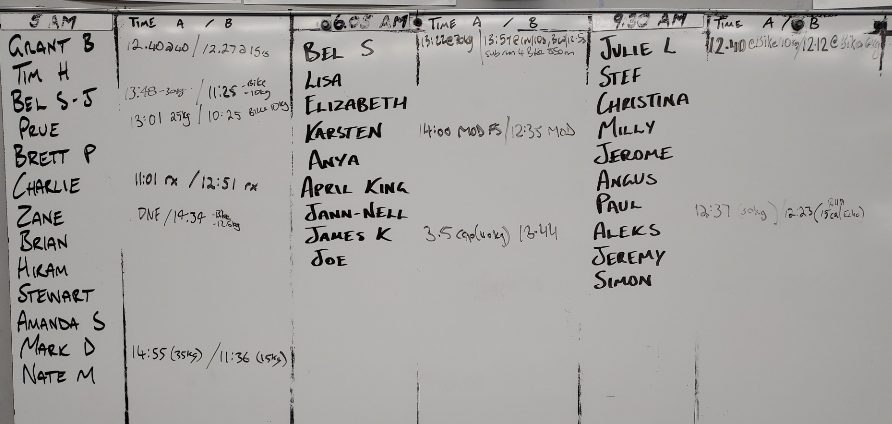 5 AM TIME A / B
GRANT B 12.40@40 / 12.27@15
TIM H
BEL S-J 13:48-30kg / 11:25 -Bike -10kg
PRUE 13:01 25kg / 10:25 Bike 10kg
BRETT P
CHARLIE 11:01 rx / 12:51 rx
ZANE DNF / 14:34 -Bike -12.5kg
BRIAN
HIRAM
STEWART
AMANDA S
MARK D 14:55 (35kg) / 11:36 (15kg)
NATE M
06.05 AM TIME A / B
BEL S 13:22@30kg
sub run 4 Bike 550m
LISA
ELIZABETH
KARSTEN 14:00 MOD FS / 12:35 MOD
ANYA
APRIL KING
JANN-NELL
JAMES K 3.5 cap (40kg) / 13.44
JOE
9.30 AM TIME A / B
JULIE L 12.40 @Bike 10kg / 12.12 @Bike
STEF
CHRISTINA
MILLY
JEROME
ANGUS
PAUL 12:37 (30kg) / 12:23 (15cal
RUN
ALEKS
JEREMY
SIMON